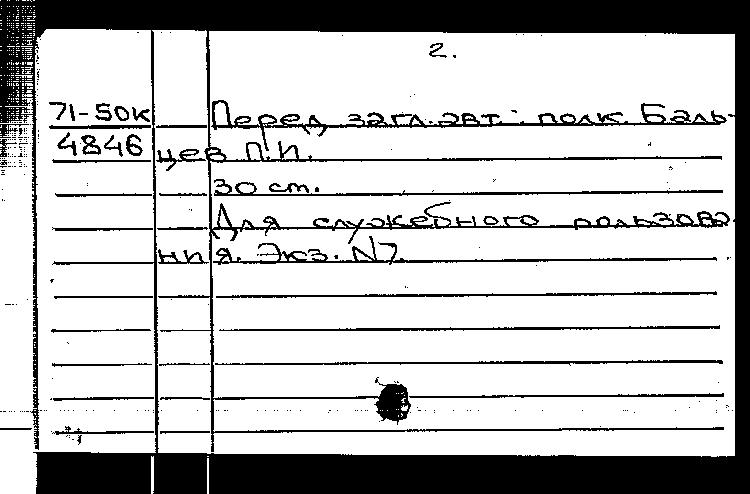 2.
71-50к Перед загл. авт.: полк. Баль-
4846 цев П.И.
30 ст.
Для служебного пользова-
ния. Экз. N7.